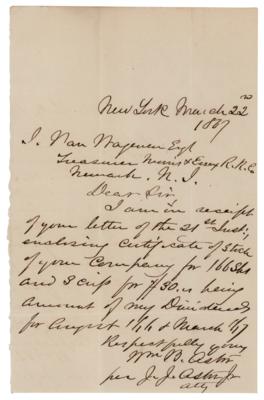 New York March 22nd
1867
J. Van Wagenen Esq
Treasurer Morris & Essex R.R. Co
Newark. N. J.
Dear Sir
I am in receipt
of your letter of the 21st Inst;
enclosing Certificate of Stock
of your Company for 166 Shs
and Scrip for $30. being
amount of my Dividends
for August 1/66 & March 1/67
Respectfully yours
Wm B. Astor
per J. J. Astor Jr
atty